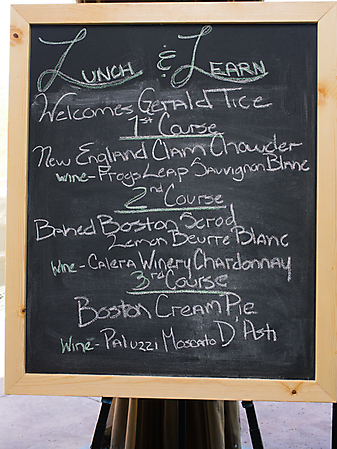 Lunch & Learn
Welcomes Gerald Tice
1st Course
New England Clam Chowder
Wine- Frogs Leap Sauvignon Blanc
2nd Course
Baked Boston Scrod
Lemon Beurre Blanc
Wine- Calera Winery Chardonnay
3rd Course
Boston Cream Pie
Wine- Paluzzi Moscato D'Asti